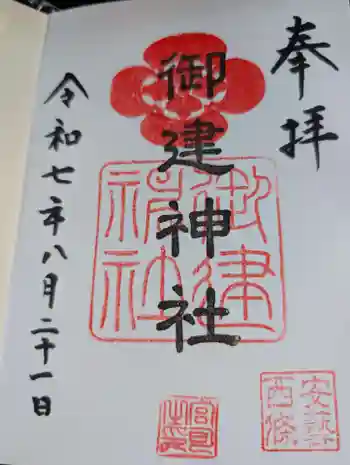 奉拝
御建神社
令和七年八月二十一日
御建
神社
安芸
西條